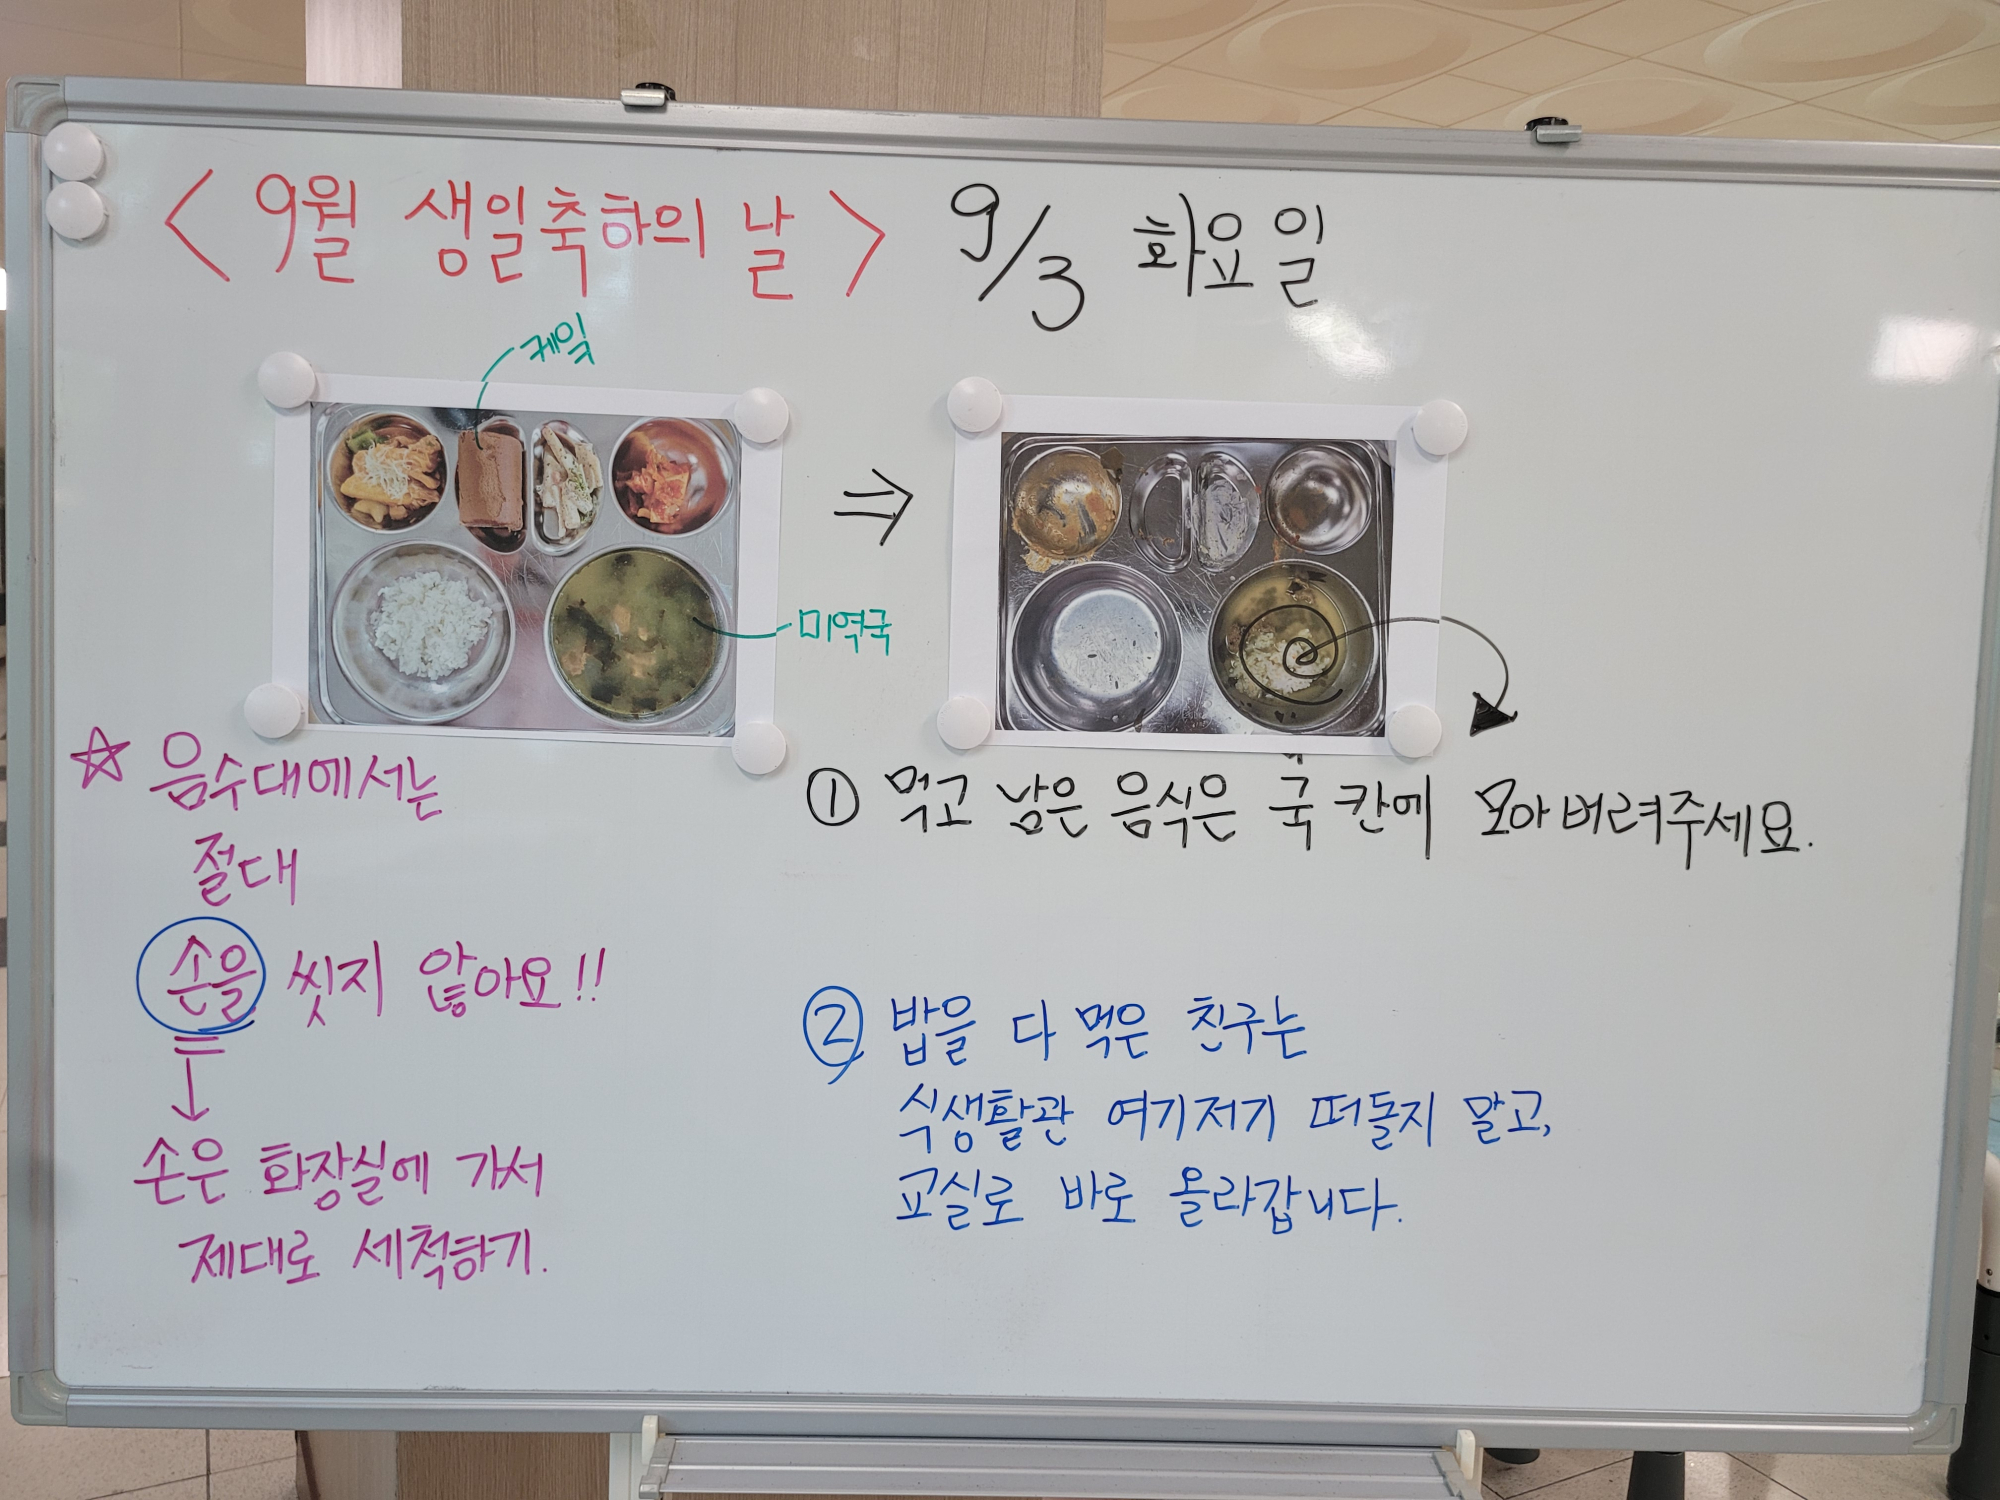 <9월 생일축하의 날> 9/3 화요일
케잌
미역국
☆ 음수대에서는
절대
손을 씻지 않아요!!
↓
손은 화장실에 가서
제대로 세척하기.
⇒
① 먹고 남은 음식은 국 칸에 모아버려주세요.
② 밥을 다 먹은 친구는
식생활관 여기저기 떠돌지 말고,
교실로 바로 올라갑니다.